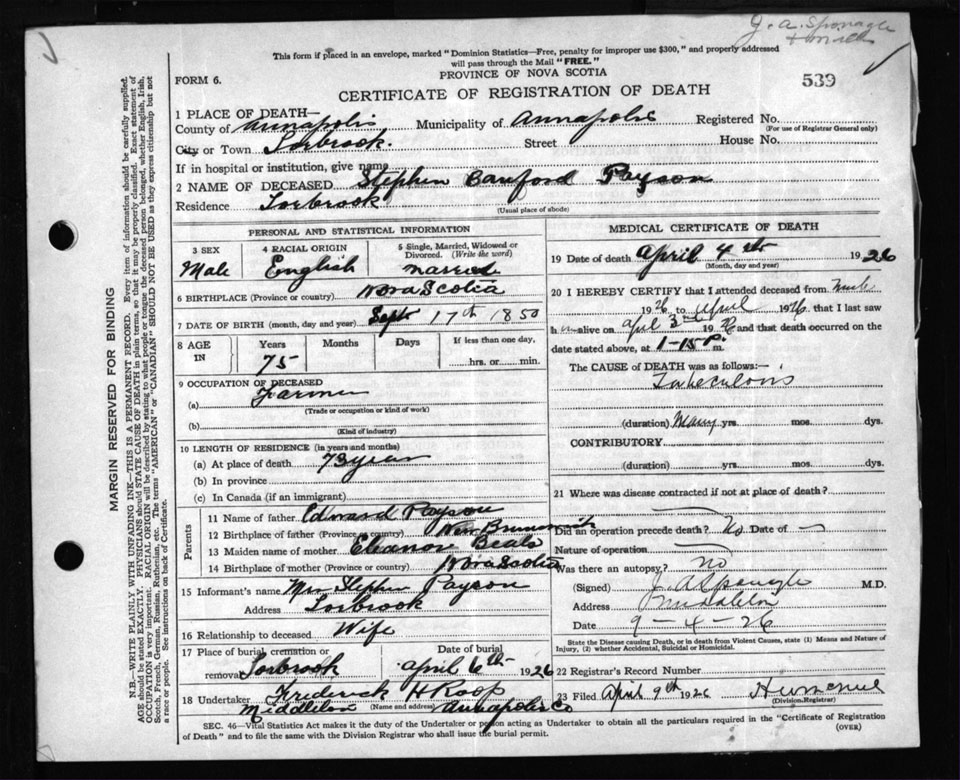 J. A. Sponagle
This form if placed in an envelope, marked "Dominion Statistics—Free, penalty for improper use $300," and properly addressed
will pass through the Mail "FREE."
PROVINCE OF NOVA SCOTIA
FORM 6.
539
CERTIFICATE OF REGISTRATION OF DEATH
1 PLACE OF DEATH—
County of Annapolis Municipality of Annapolis Registered No.
(For use of Registrar General only)
City or Town Torbrook. Street House No.
If in hospital or institution, give name
2 NAME OF DECEASED Stephen Payson
Residence Torbrook
(Usual place of abode)
PERSONAL AND STATISTICAL INFORMATION
3 SEX
Male
4 RACIAL ORIGIN
English
5 Single, Married, Widowed or
Divorced. (Write the word)
Married
6 BIRTHPLACE (Province or country) Nova Scotia
7 DATE OF BIRTH (month, day and year) Sept 17th 1850
8 AGE
IN
Years
75
Months
Days
If less than one day,
hrs. or min.
9 OCCUPATION OF DECEASED
(a) Farmer
(Trade or occupation or kind of work)
(b)
(Kind of industry)
10 LENGTH OF RESIDENCE (in years and months)
(a) At place of death 73 years
(b) In province
(c) In Canada (if an immigrant)
Parents
11 Name of father Edward Payson
12 Birthplace of father (Province or country) New Brunswick
13 Maiden name of mother Eleanor Beals
14 Birthplace of mother (Province or country) Nova Scotia
15 Informant's name Mrs Stephen Payson
Address Torbrook
16 Relationship to deceased Wife
17 Place of burial, cremation or
removal Torbrook
Date of burial
April 6th 1926
18 Undertaker Frederick H Roop
(Name and address)
Middleton Annapolis Co
MEDICAL CERTIFICATE OF DEATH
19 Date of death April 4th 1926
(Month, day and year)
20 I HEREBY CERTIFY that I attended deceased from
1926 to April 1926 that I last saw
him alive on Apl 3rd 1926 and that death occurred on the
date stated above, at 1-15 P. m.
The CAUSE of DEATH was as follows:—
(duration) Many yrs. mos. dys.
CONTRIBUTORY
(duration) yrs. mos. dys.
21 Where was disease contracted if not at place of death?
Did an operation precede death? No Date of —
Nature of operation
Was there an autopsy? no
(Signed) J. A. Sponagle M.D.
Address Middleton
Date 9-4-26
State the Disease causing Death, or in death from Violent Causes, state (1) Means and Nature of
Injury, (2) whether Accidental, Suicidal or Homicidal.
22 Registrar's Record Number
23 Filed April 9th 1926
(Division Registrar)
SEC. 46—Vital Statistics Act makes it the duty of the Undertaker or person acting as Undertaker to obtain all the particulars required in the "Certificate of Registration
of Death" and to file the same with the Division Registrar who shall issue the burial permit.
(OVER)
MARGIN RESERVED FOR BINDING
N.B.—WRITE PLAINLY WITH UNFADING INK—THIS IS A PERMANENT RECORD. Every item of information should be carefully supplied.
AGE should be stated EXACTLY. PHYSICIANS should STATE CAUSE OF DEATH in plain terms, so that it may be properly classified. Exact statement of
OCCUPATION is very important. RACIAL ORIGIN will be described by stating to what people or tongue the deceased person belonged, whether English, Irish,
Scotch, French, German, Russian, Ruthenian, etc. The terms "AMERICAN" or "CANADIAN" SHOULD NOT BE USED as they express citizenship but not
a race or people. See instructions on back of Certificate.